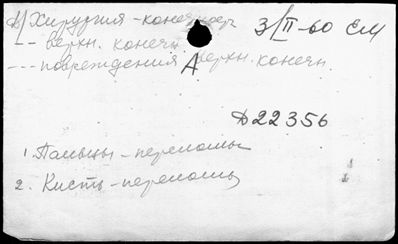 А/ Хирургия - конечност 3/II-60 ЕМ
-- верхн. конечн.
--- повреждения А верхн. конечн.
Д22356
1. Пальцы - переломы
2. Кисть - переломы